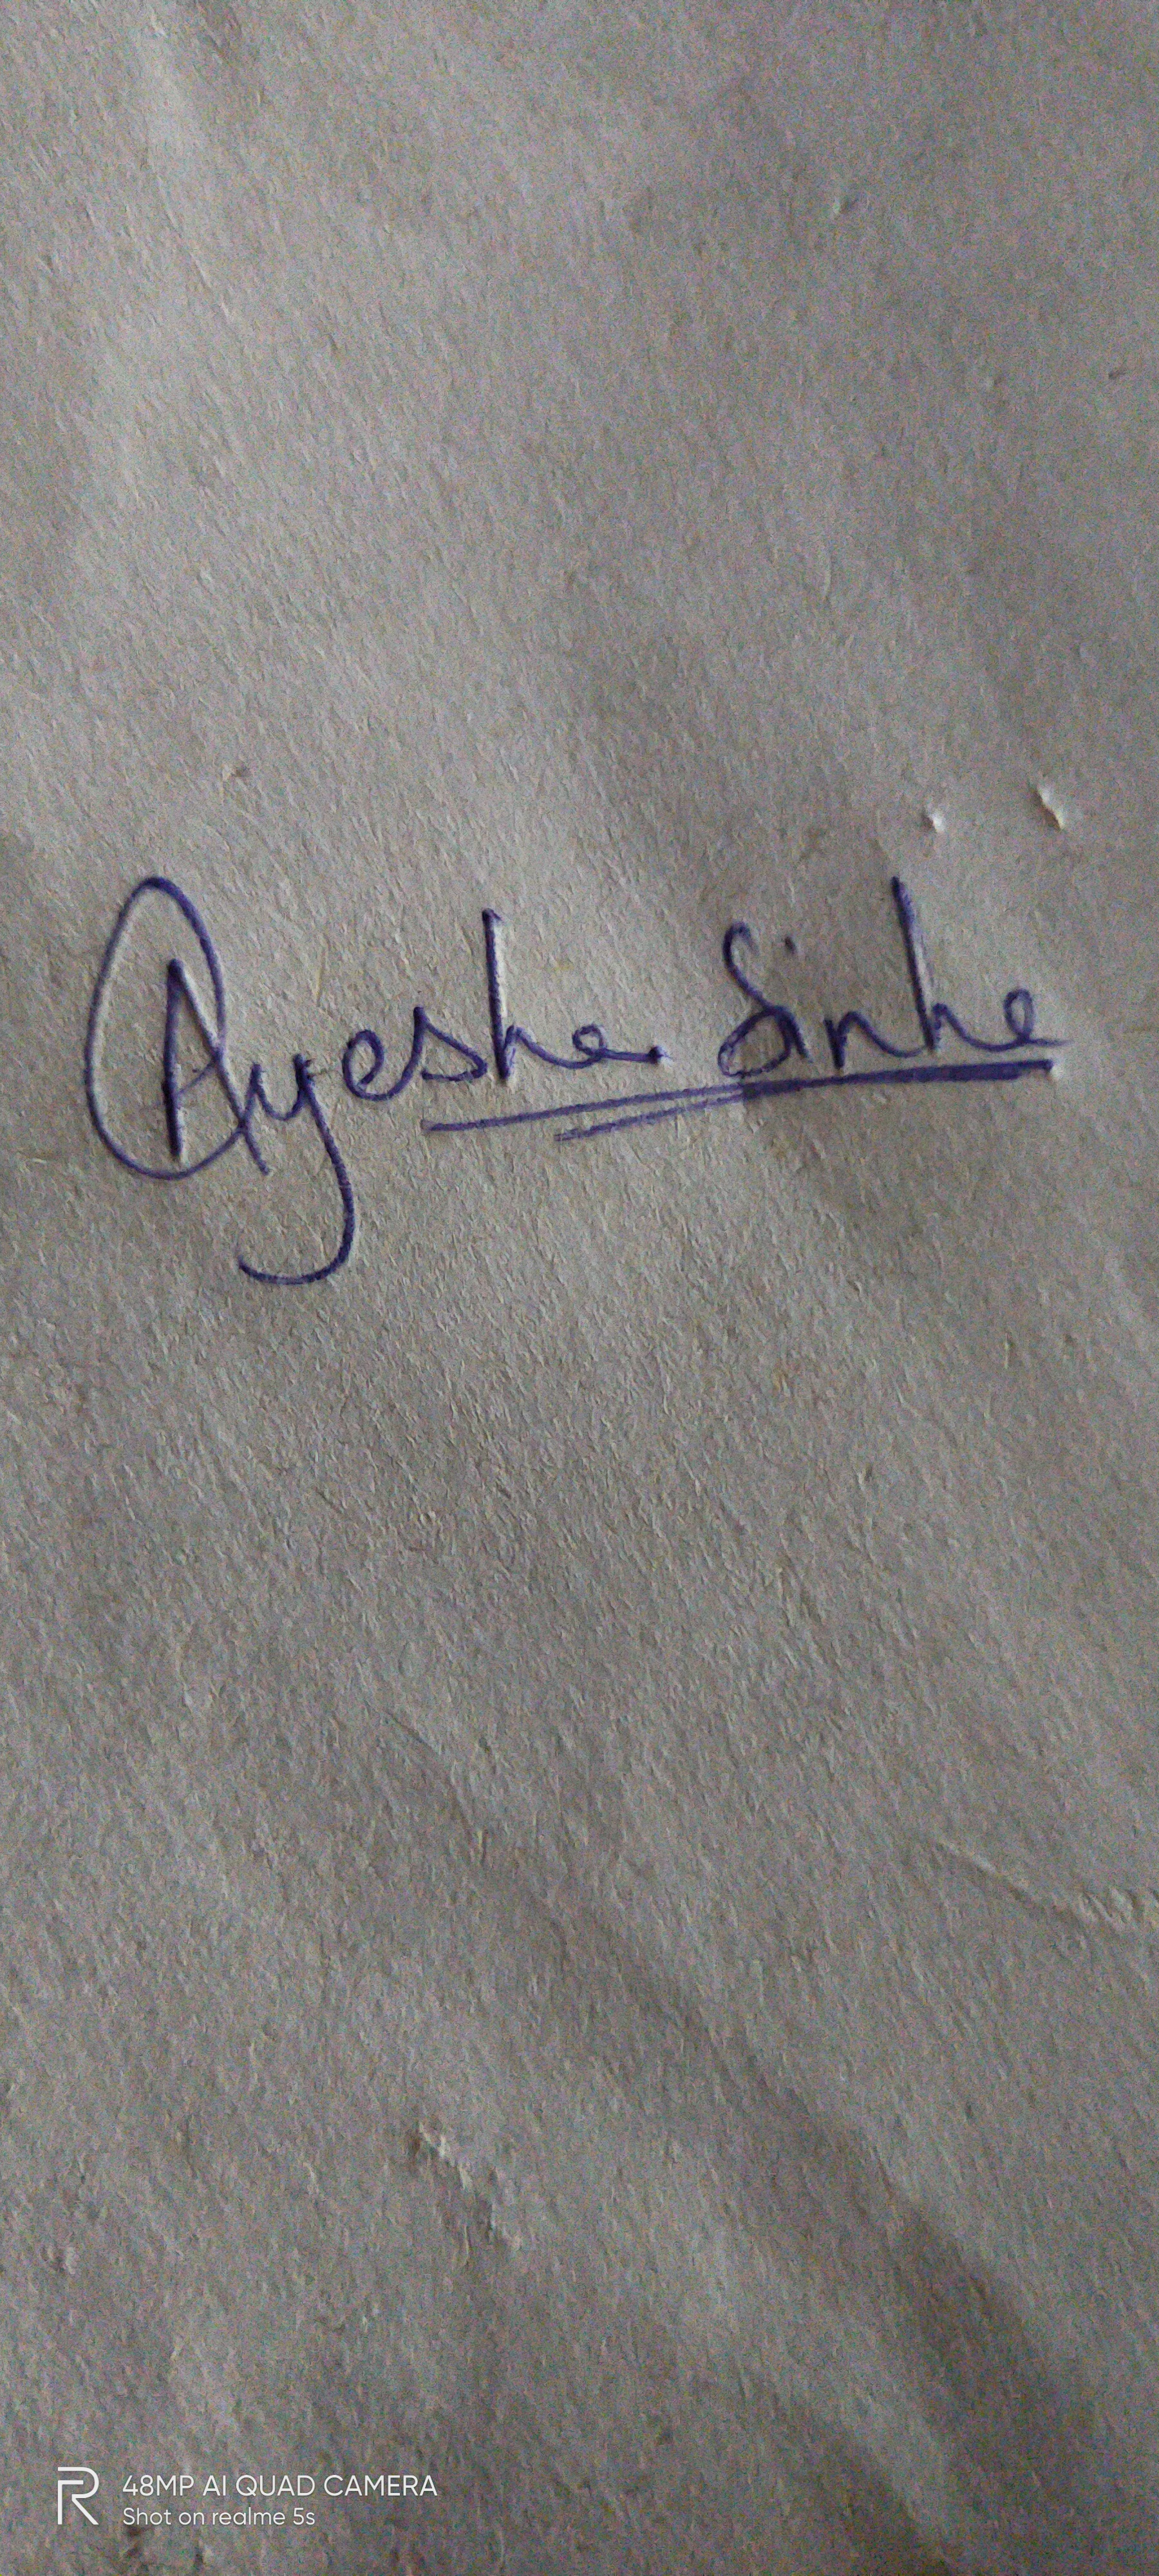 Ayesha Sinha
48MP AI QUAD CAMERA
Shot on realme 5s